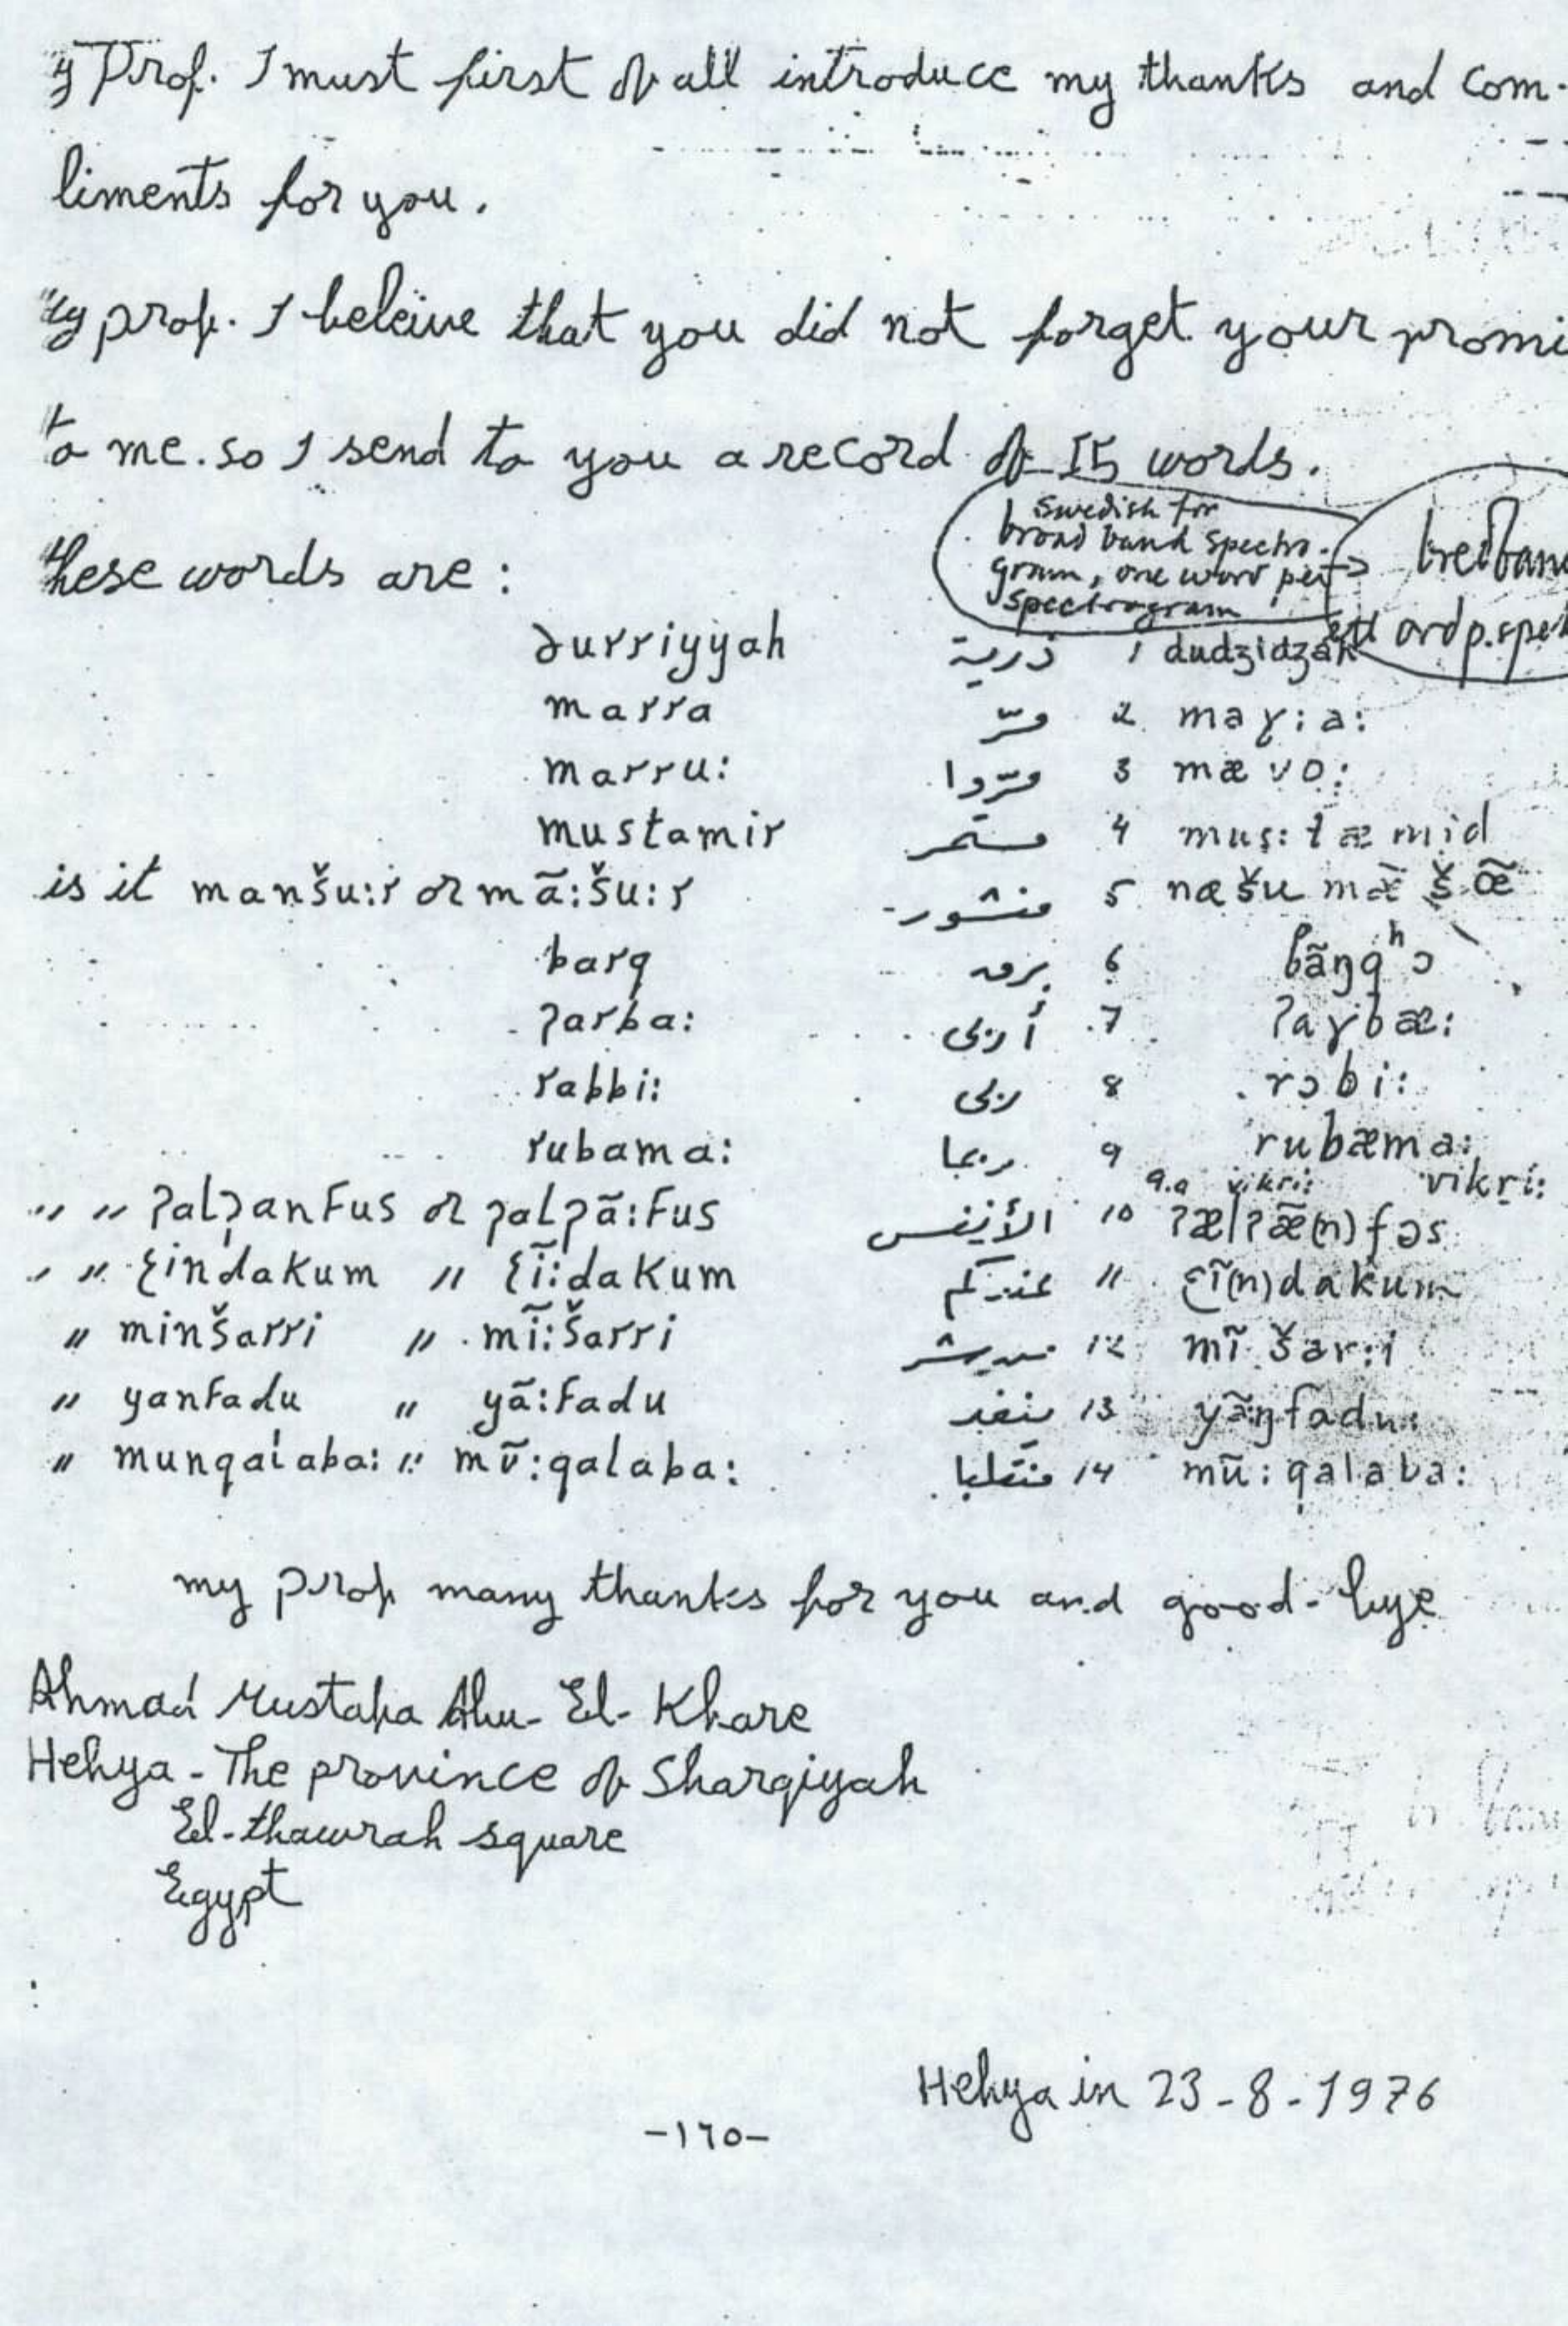 y Prof. I must first of all introduce my thanks and com-
liments for you.
y prof. I beleive that you did not forget your promi
to me. so I send to you a record of 15 words.
Swedish for
broad band spectro-
gram, one word per
spectrogram
bredban
ett ord p. spek
these words are :
ðurriyyah ذرية 1 dudzidzah
marra مرّ 2 maɣ:a:
marru: مرّوا 3 mævo:
mustamir مستمر 4 mus:tæmid
is it manšu:r or mã:šu:r منشور 5 næšu mæ̃ šœ̃
barq برق 6 bãŋqʰɔ
ʔarba: أربى 7 ʔaɣbæ:
rabbi: ربى 8 rɔbi:
rubama: ربما 9 rubæma:
9.a vikri: vikri:
" " ʔalʔanfus or ʔalʔã:fus الأنفس 10 ʔælʔæ̃(n)fəs
" " ʕindakum " ʕĩ:dakum عندكم 11 ʕĩ(n)dakum
" minšarri " mĩ:šarri من شر 12 mĩ šar:i
" yanfadu " yã:fadu ينفد 13 yãŋfadu:
" munqalaba: " mũ:qalaba: منقلبا 14 mũ:qalaba:
my prof many thanks for you and good-bye
Ahmad Mustafa Abu-El-Khare
Hehya - The province of Sharqiyah
El-thawrah square
Egypt
Hehya in 23-8-1976
-١٦٥-